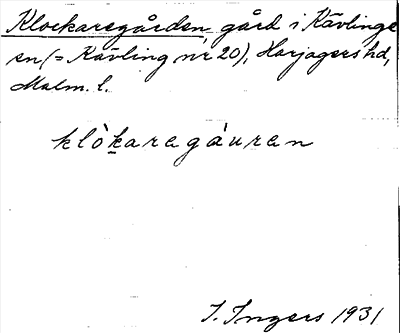 Klockaregården, gård i Kävlinge
sn, (= Kävling nr 20), Harjagers hd,
Malm. l.
klò̀karegáuren
I. Ingers 1931